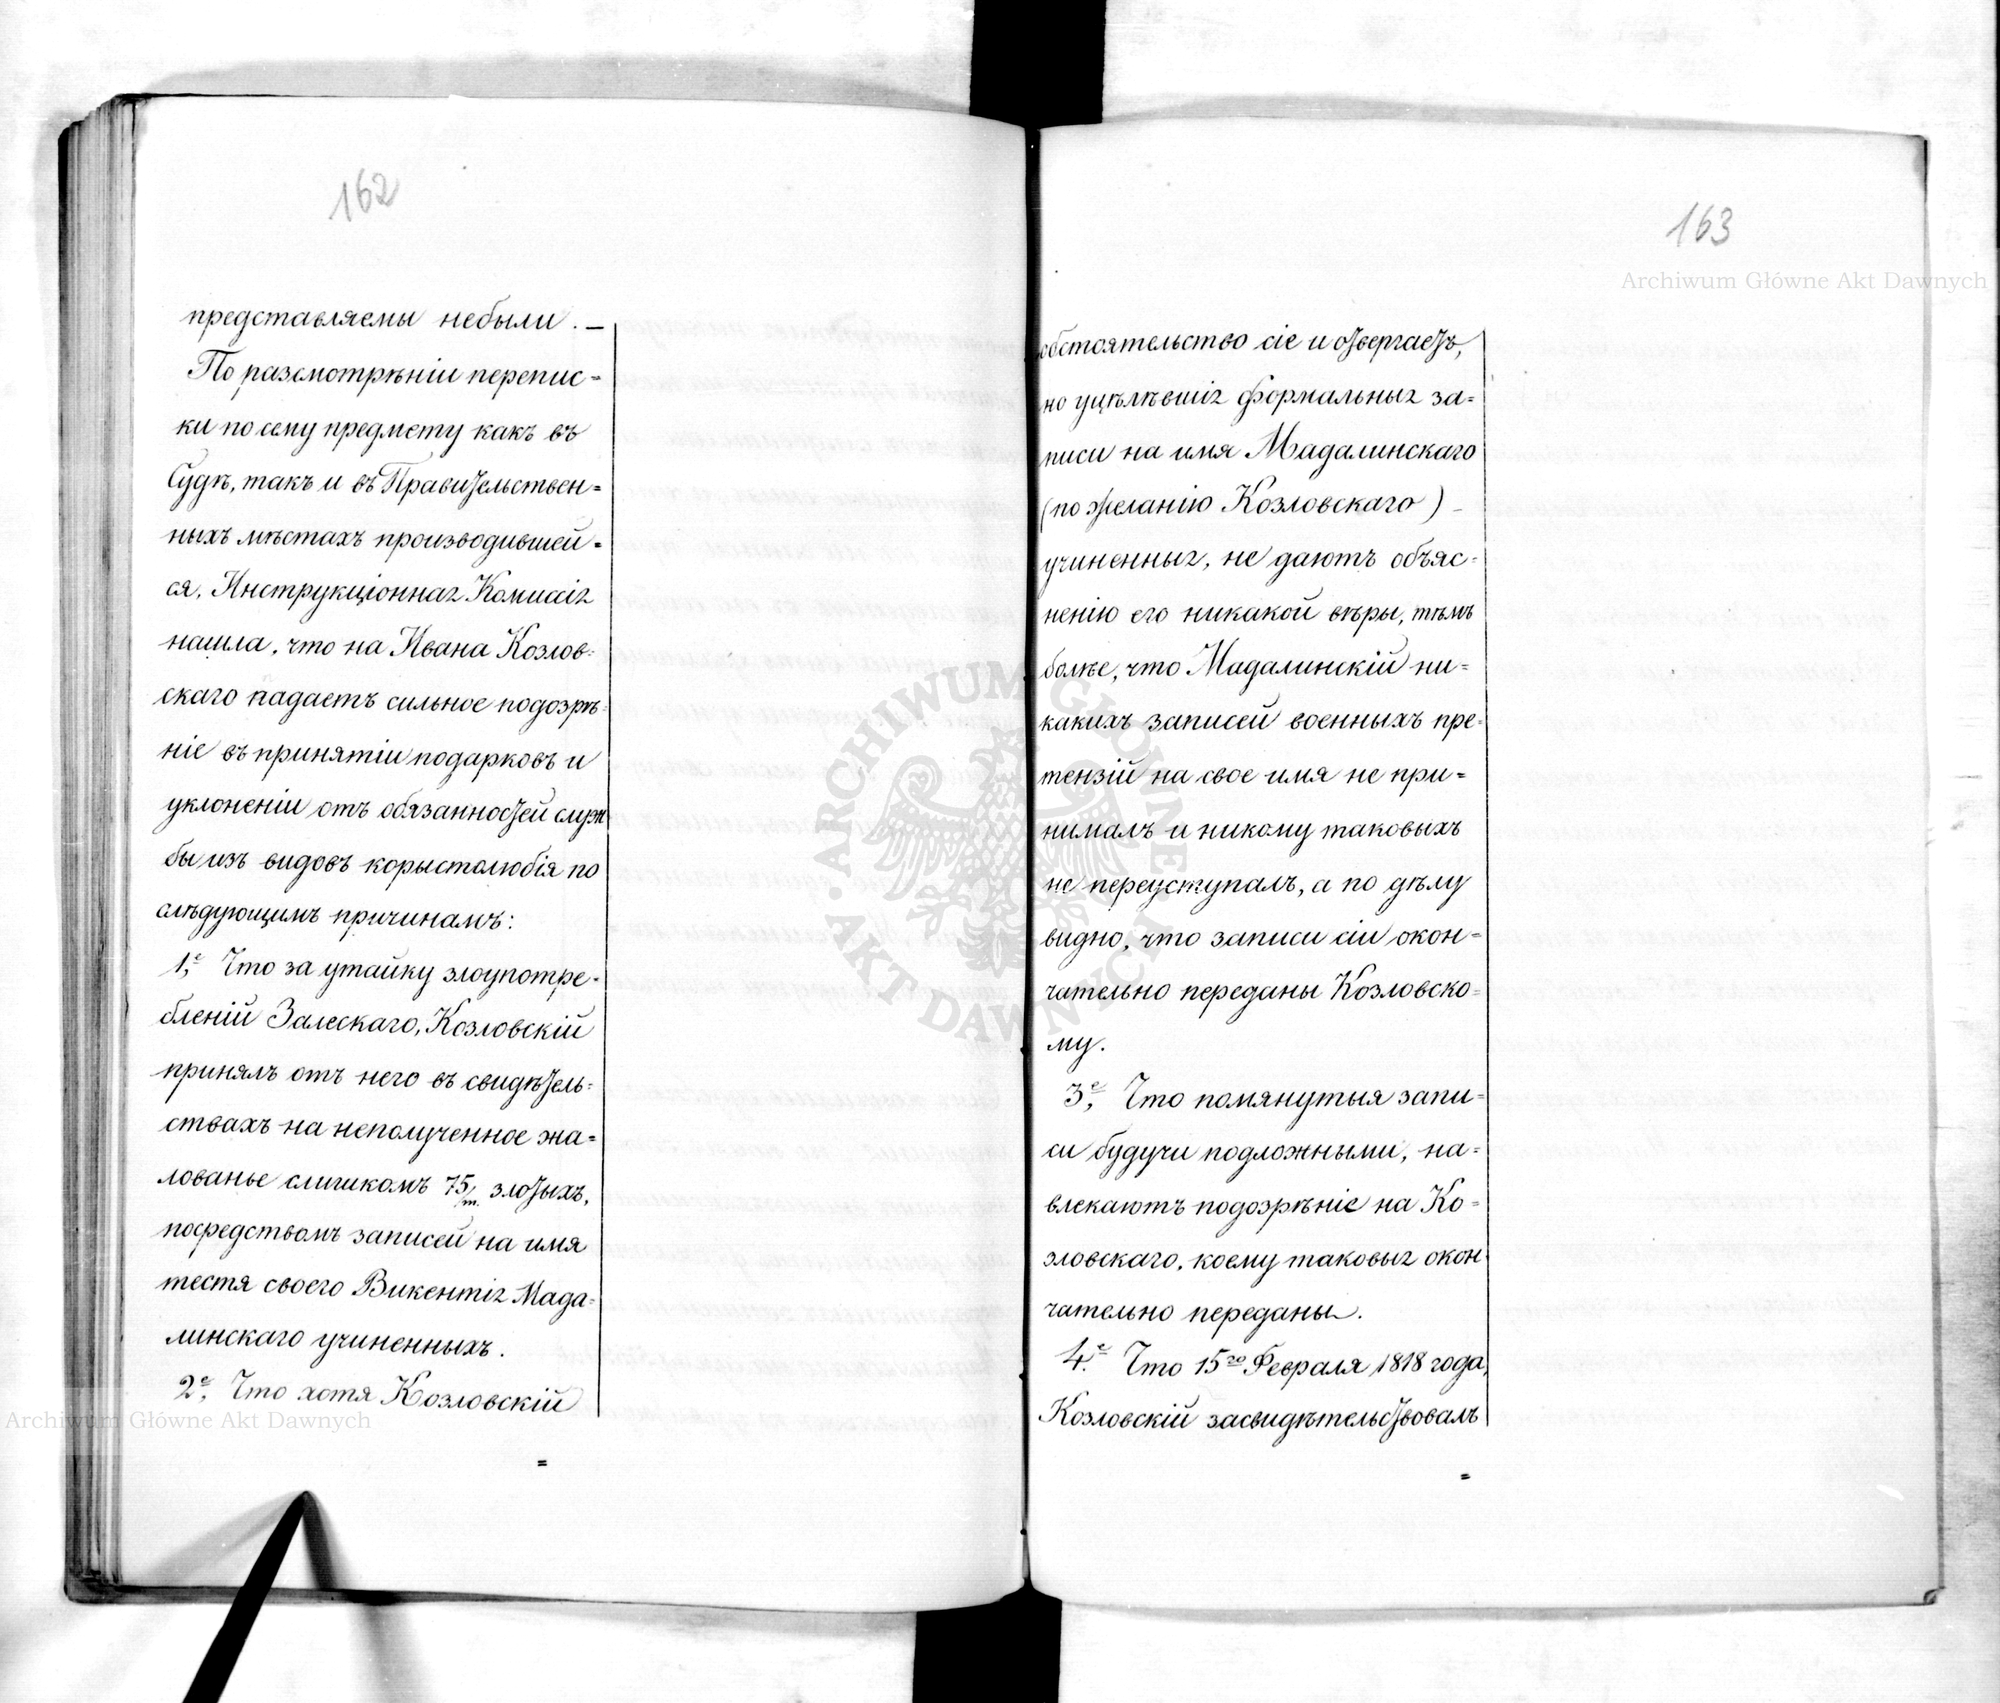 162
представляемы небыли. —
По разсмотрѣніи перепис=
ки по сему предмету какъ въ
Судѣ, такъ и въ Правительствен=
ныхъ мѣстахъ производившей=
ся, Инструкціонная Комисія
нашла, что на Ивана Козлов=
скаго падаетъ сильное подозрѣ=
ніе въ принятіи подарковъ и
уклоненіи отъ обязанностей служ
бы изъ видовъ корыстолюбія по
слѣдующимъ причинамъ:
1,е Что за утайку злоупотре=
бленій Залескаго, Козловскій
принялъ отъ него въ свидѣтель=
ствахъ на неполученное жа=
лованье слишкомъ 75/m. злотыхъ,
посредствомъ записей на имя
тестя своего Викентія Мада=
линскаго учиненныхъ.
2,е Что хотя Козловскій
=
163
обстоятельство сіе и отвергаетъ,
но уцѣлѣвшія формальныя за=
писи на имя Мадалинскаго
(по желанію Козловскаго) –
учиненныя, не даютъ объяс=
ненію его никакой вѣры, тѣмъ
болѣе, что Мадалинскій ни=
какихъ записей военныхъ пре=
тензій на свое имя не при=
нималъ и никому таковыхъ
не переуступалъ, а по дѣлу
видно, что записи сіи окон=
чательно переданы Козловско=
му.
3,е Что помянутыя запи=
си будучи подложными, на=
влекаютъ подозрѣніе на Ко=
зловскаго, коему таковыя окон
чательно переданы.
4.е Что 15го Февраля 1818 года,
Козловскій засвидѣтельствовалъ
=
Archiwum Główne Akt Dawnych
Archiwum Główne Akt Dawnych
ARCHIWUM GŁÓWNE AKT DAWNYCH